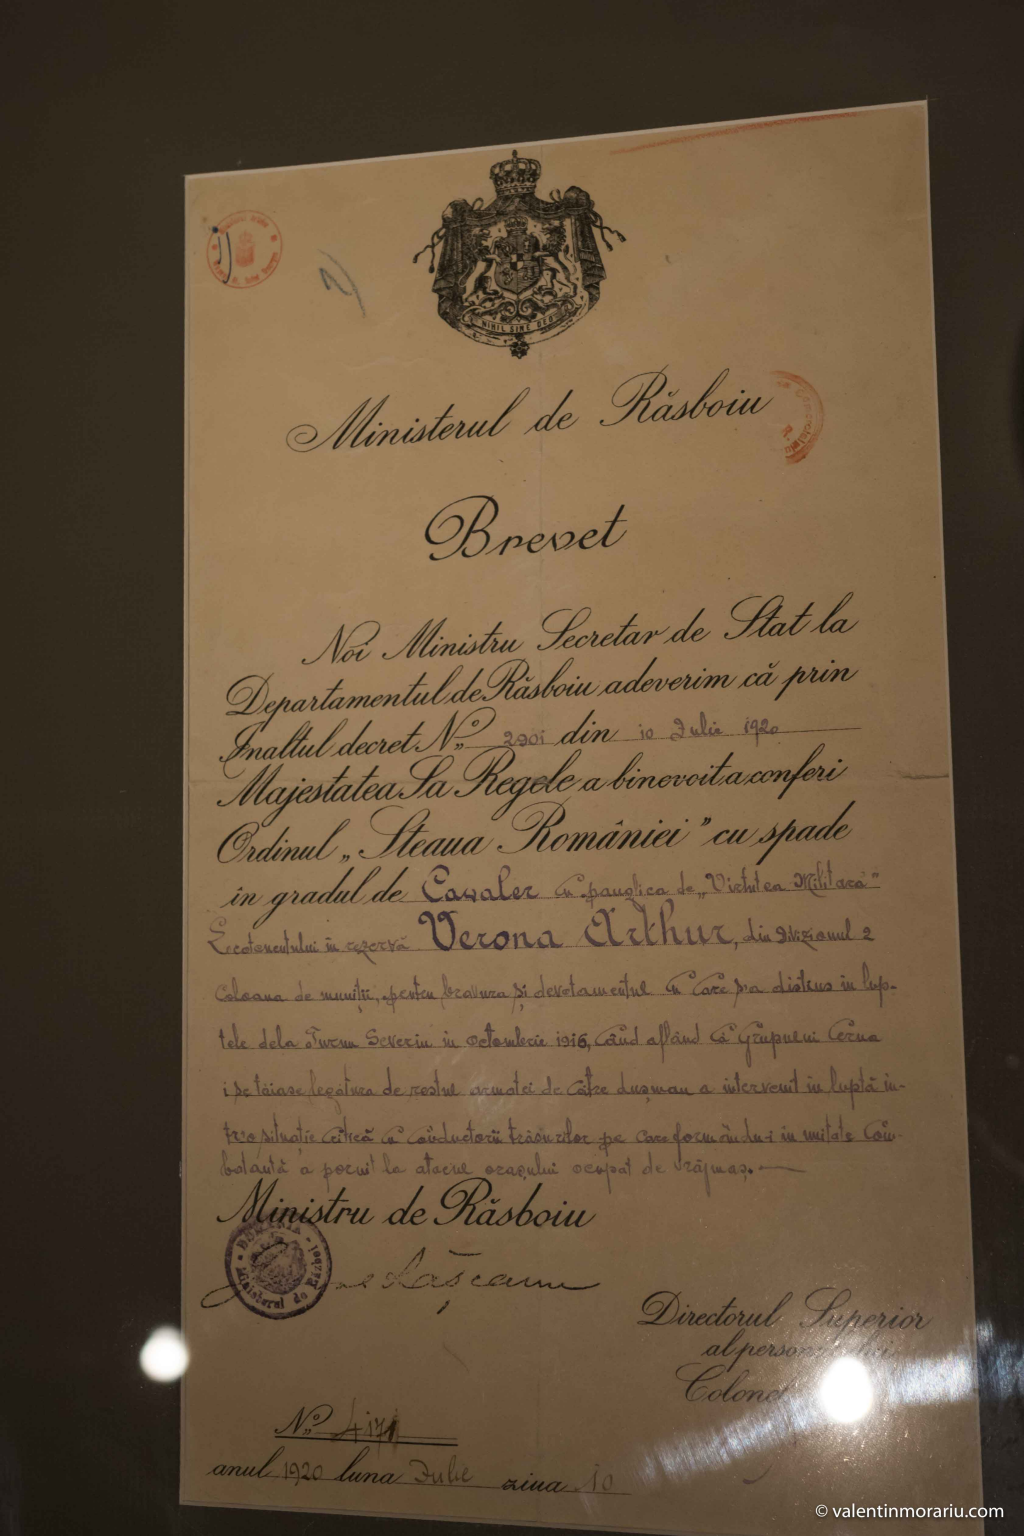 NIHIL SINE DEO
Ministerul de Răsboiu
Brevet
Noi Ministru Secretar de Stat la
Departamentul de Răsboiu adeverim că prin
Inaltul decret No. 2901 din 10 Iulie 1920
Majestatea Sa Regele a binevoit a conferi
Ordinul „Steaua României” cu spade
in gradul de Cavaler cu panglica de „Virtutea Militară”
Locotenentului în rezervă Verona Arthur, din Divizionul 2
coloana de muniții, pentru bravura și devotamentul cu care s'a distins in lup-
tele dela Turnu Severin in octombrie 1916, când aflând că Grupului Cerna
i se tăiase legătura de restul armatei de către dușman a intervenit in luptă in-
tr'o situație critică cu conductorii trăsurilor pe care formându-i in unitate com-
botantă a pornit la atacul orașului ocupat de vrăjmaș.
Ministru de Răsboiu
ROMANIA
Ministerul de Război
Rășcanu
Directorul Superior
al
Colonel
No. 4171
anul 1920 luna Iulie ziua 10
© valentinmorariu.com